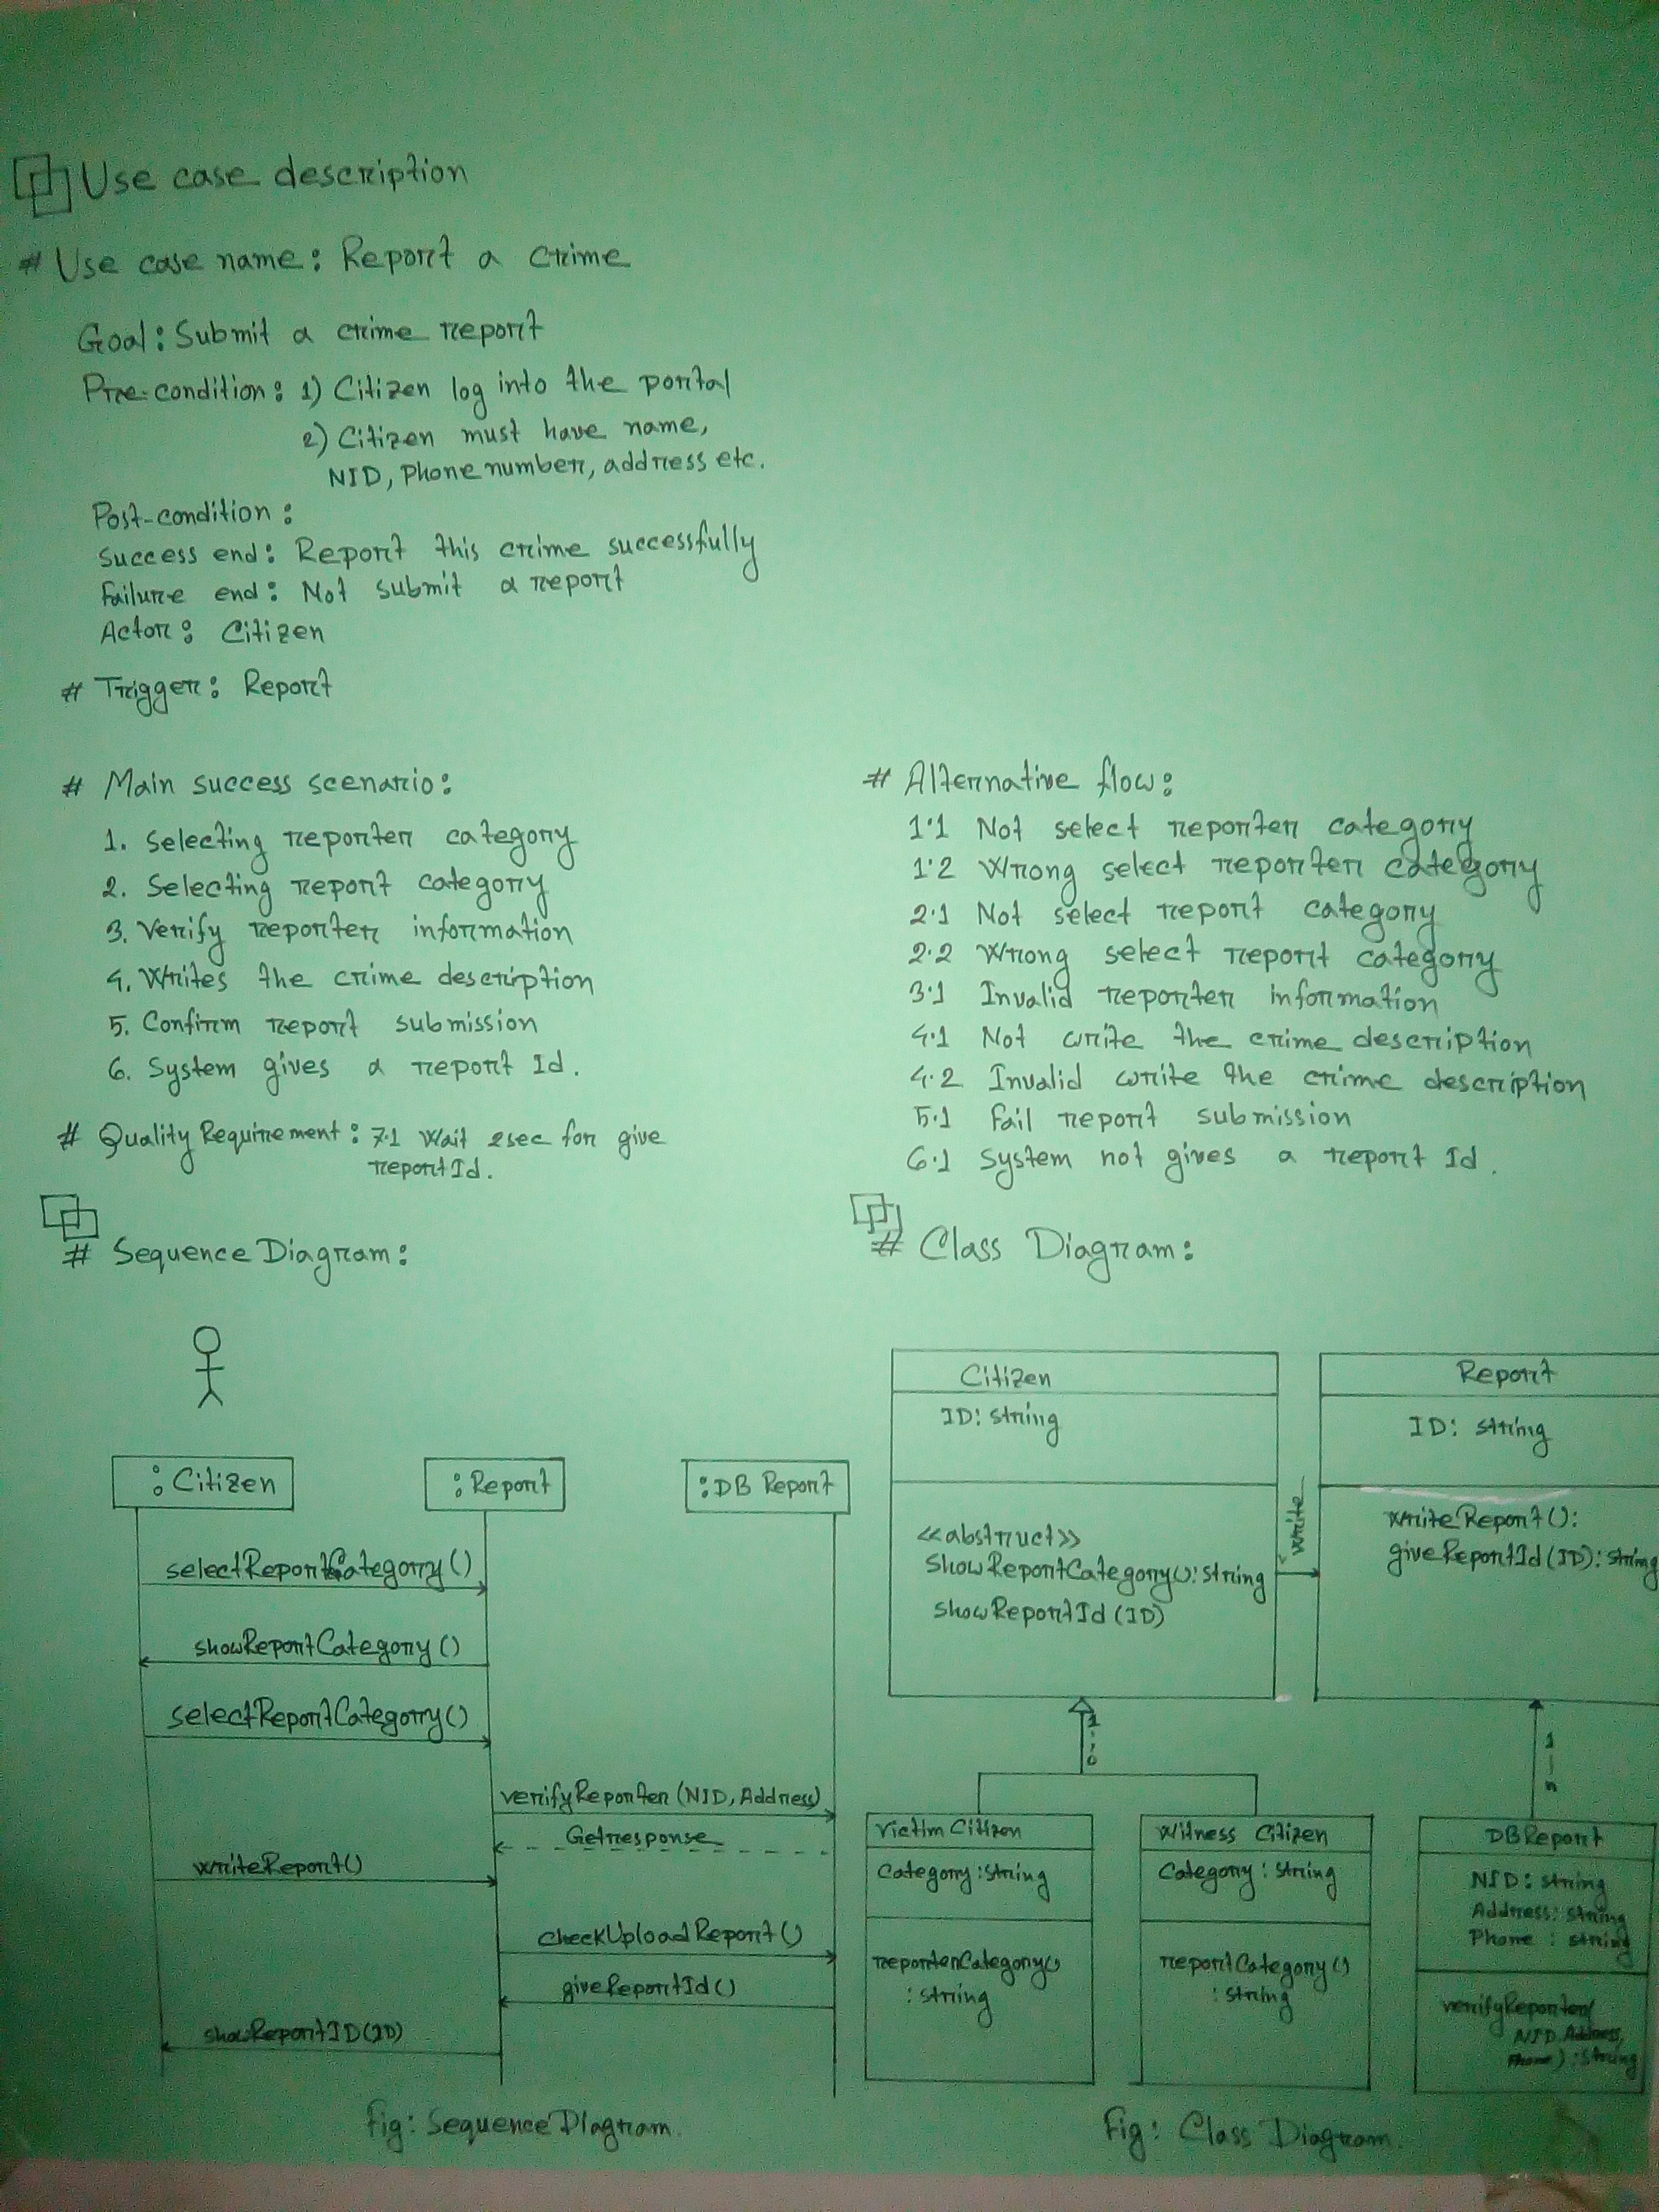 Use case description
# Use case name: Report a crime
Goal: Submit a crime report
Pre-condition: 1) Citizen log into the portal
2) Citizen must have name,
NID, Phone number, address etc.
Post-condition:
Success end: Report this crime successfully
Failure end: Not submit a report
Actor: Citizen
# Trigger: Report
# Main success scenario:
1. Selecting reporter category
2. Selecting report category
3. Verify reporter information
4. Writes the crime description
5. Confirm report submission
6. System gives a report Id.
# Quality Requirement: 7.1 Wait 2sec for give
report Id.
# Alternative flow:
1.1 Not select reporter category
1.2 Wrong select reporter category
2.1 Not select report category
2.2 Wrong select report category
3.1 Invalid reporter information
4.1 Not write the crime description
4.2 Invalid write the crime description
5.1 Fail report submission
6.1 System not gives a report Id.
# Sequence Diagram:
:Citizen
:Report
:DB Report
selectReportCategory()
showReportCategory()
selectReportCategory()
verifyReporter(NID, Address)
Getresponse
writeReport()
checkUploadReport()
giveReportId()
showReportID(ID)
Fig: Sequence Diagram.
# Class Diagram:
Citizen
ID: string
<<abstruct>>
showReportCategory(): string
showReportId(ID)
write
Report
ID: string
writeReport():
giveReportId(ID): string
1..0
1--n
Victim Citizen
Category: string
reporterCategory()
: string
Witness Citizen
Category: string
reportCategory()
: string
DBReport
NID: string
Address: string
Phone: string
verifyReporter(
NID, Address,
Phone): string
Fig: Class Diagram.